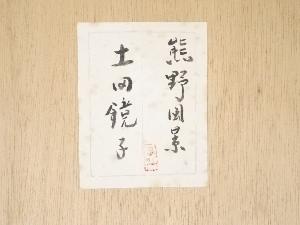 熊野風景
土田鏡子